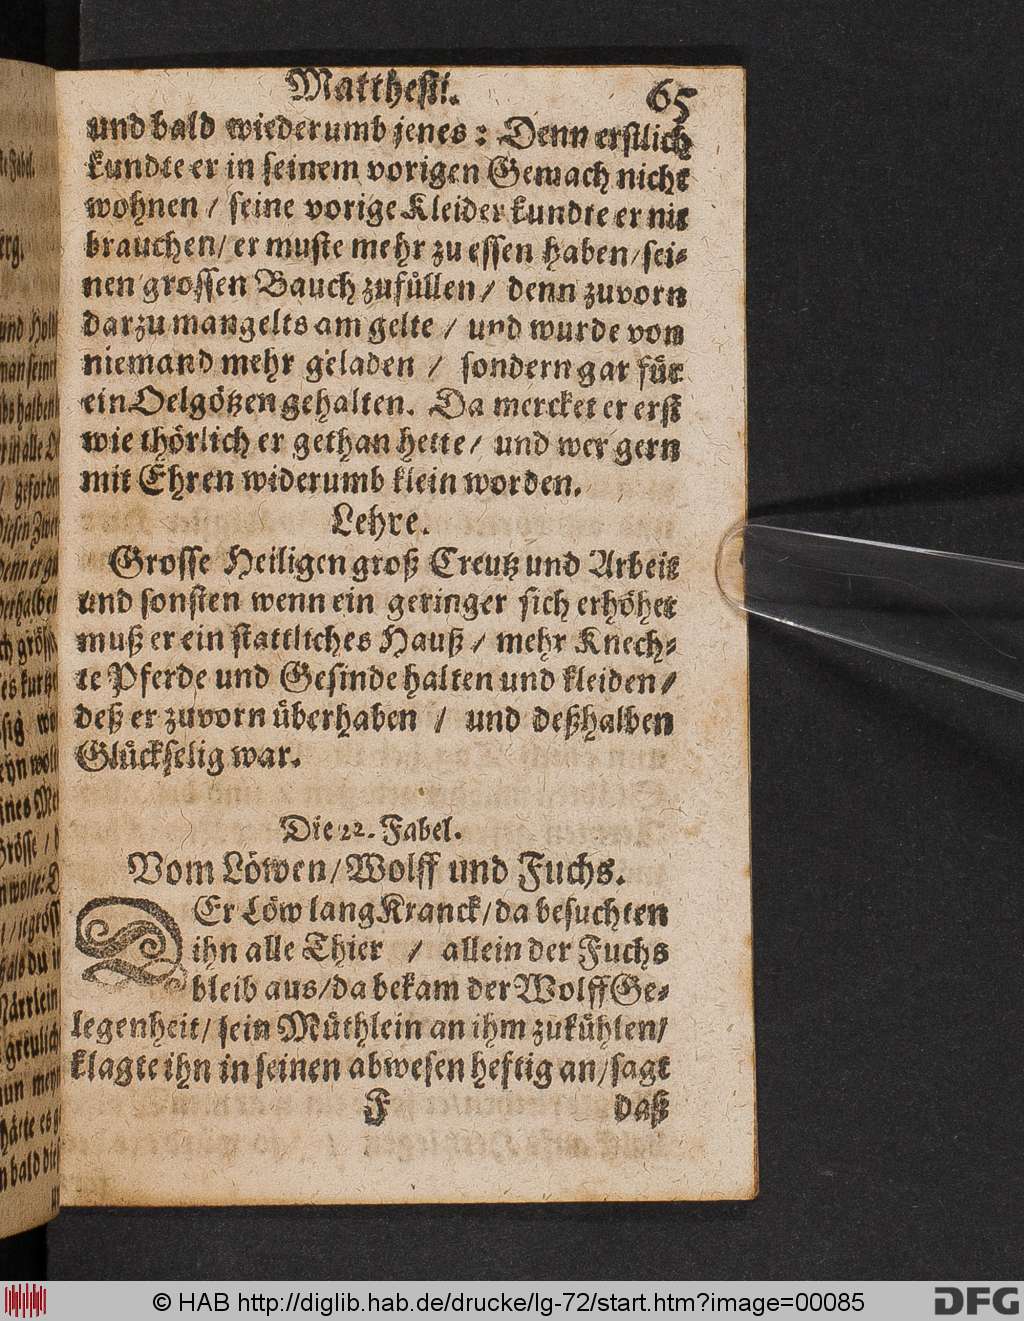 Matthesii.
65
und bald wiederumb jenes: Denn erstlich
kundte er in seinem vorigen Gemach nicht
wohnen / seine vorige Kleider kundte er nit
brauchen / er muste mehr zu essen haben / sei-
nen grossen Bauch zufüllen / denn zuvorn
darzu mangelts am gelte / und wurde von
niemand mehr geladen / sondern gar für
ein Oelgötzen gehalten. Da mercket er erst
wie thörlich er gethan hette / und wer gern
mit Ehren widerumb klein worden.
Lehre.
Grosse Heiligen groß Creutz und Arbeit
und sonsten wenn ein geringer sich erhöhet
muß er ein stattliches Hauß / mehr Knech-
te Pferde und Gesinde halten und kleiden /
deß er zuvorn überhaben / und deßhalben
Glückselig war.
Die 22. Fabel.
Vom Löwen / Wolff und Fuchs.
DEr Löw lang Kranck / da besuchten
ihn alle Thier / allein der Fuchs
bleib aus / da bekam der Wolff Ge-
legenheit / sein Müthlein an ihm zukühlen /
klagte ihn in seinen abwesen heftig an / sagt
F daß
© HAB http://diglib.hab.de/drucke/lg-72/start.htm?image=00085
DFG